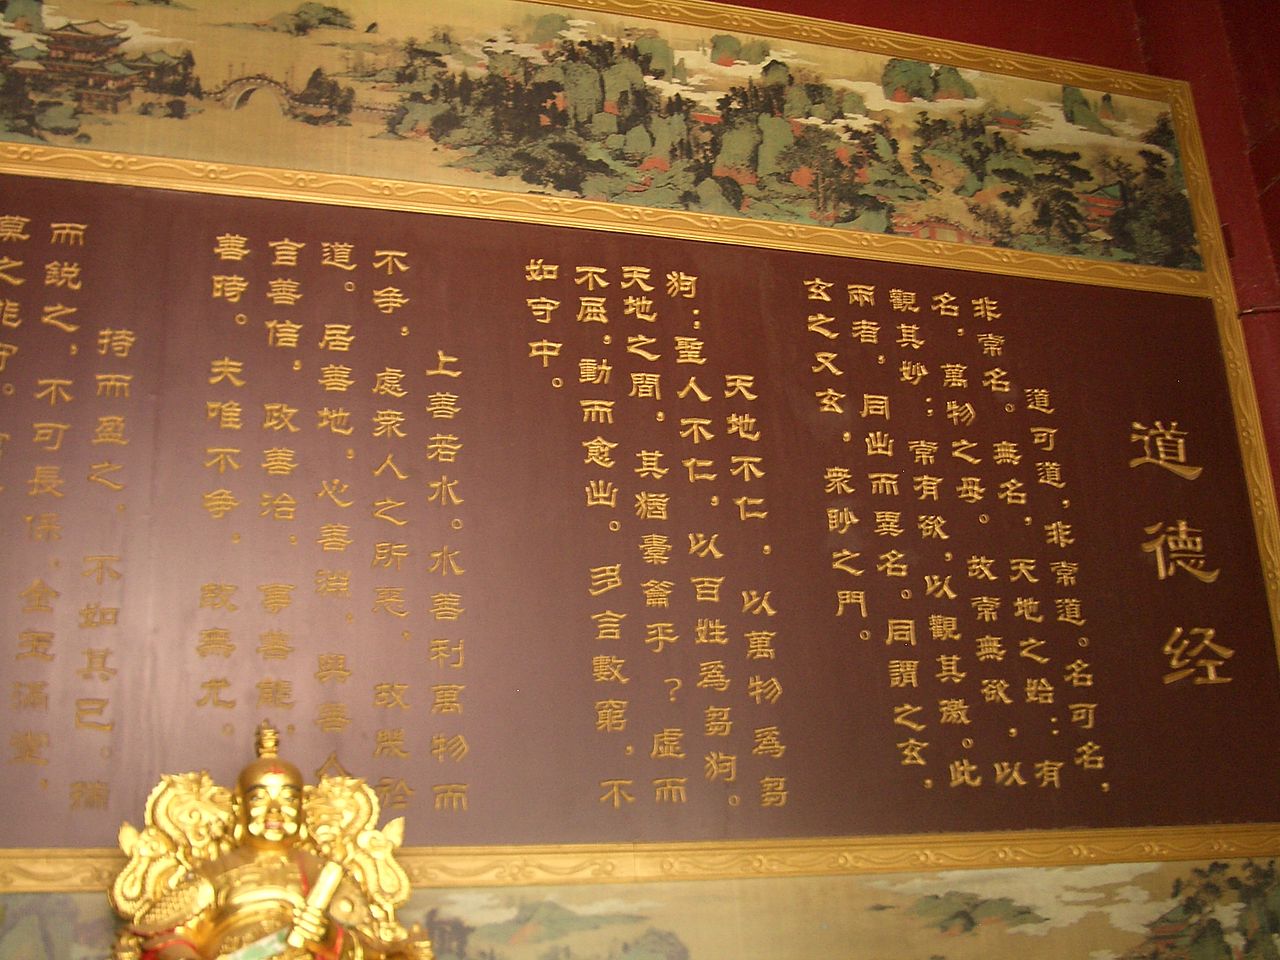 道德经
道可道，非常道。名可名，
非常名。無名，天地之始；有
名，萬物之母。故常無欲，以
觀其妙；常有欲，以觀其徼。此
兩者，同出而異名。同謂之玄，
玄之又玄，衆眇之門。
天地不仁，以萬物爲芻
狗；聖人不仁，以百姓爲芻狗。
天地之間，其猶橐籥乎？虛而
不屈，動而愈出。多言數窮，不
如守中。
上善若水。水善利萬物而
不争，處衆人之所惡，故幾於
道。居善地，心善淵，與善人
言善信，政善治，事善能，
善時。夫唯不争，故無尤。
持而盈之，不如其已。揣
而鋭之，不可長保，金玉滿堂，
莫之能守。